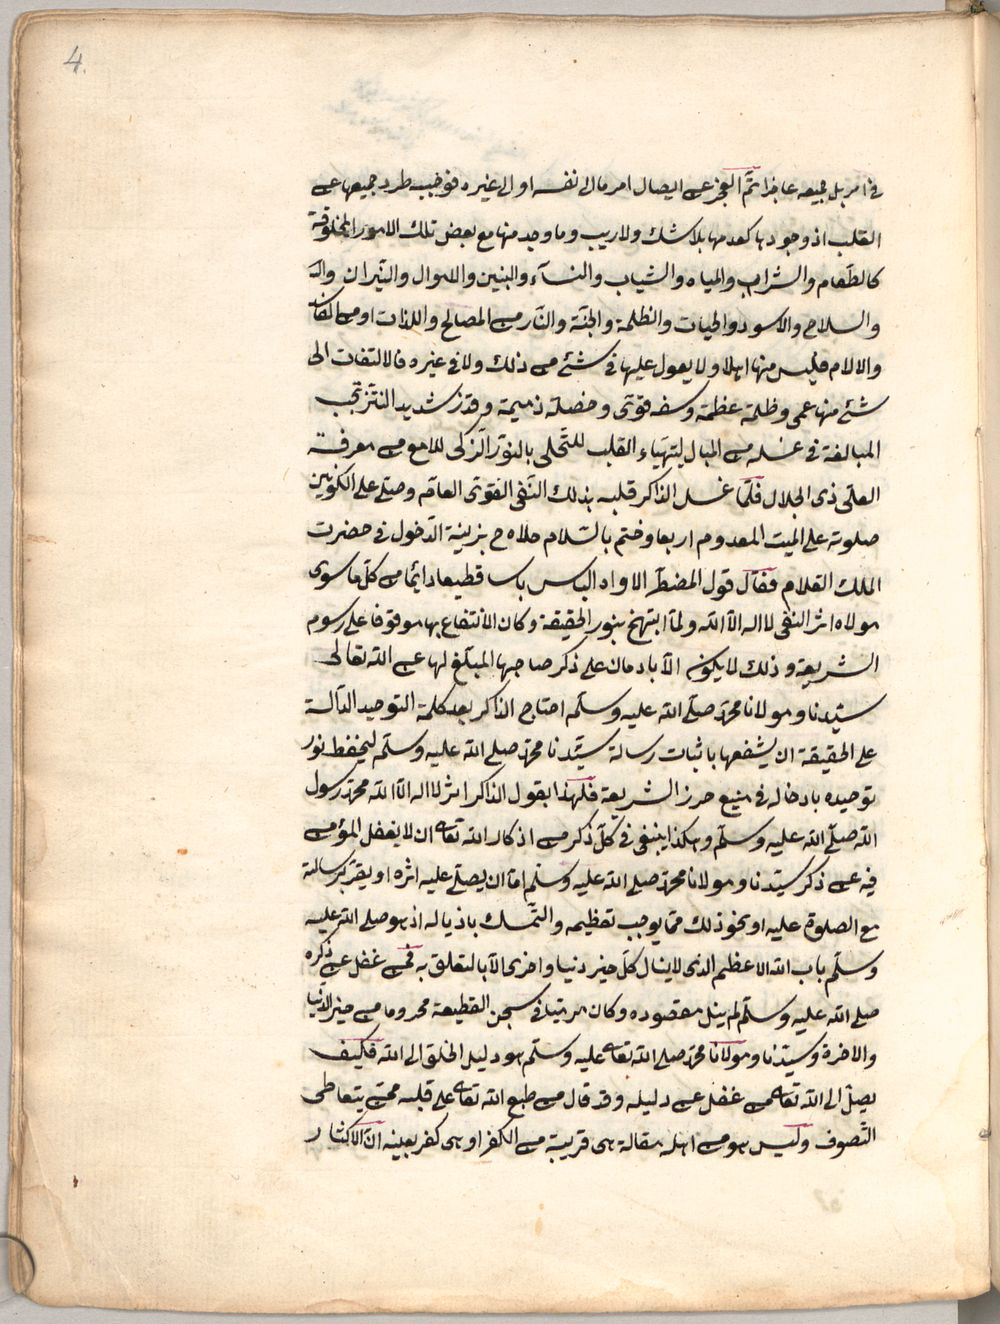 4.
في امر بل جميعه عاجزا تمّ العجز عن ايصال امر ما الى نفسه او الى غيره فوجب طرد جميعها عن
القلب اذ وجودها كعدمها بلا شك ولا ريب وما وجد منها مع بعض تلك الامور المخلوقة
كالطّعام والشراب والمياه والثياب والنسآء والبنين والاموال والنيران
والسلاح والاسود والحيات والظلمة والجنّة والنّار من المصالح واللذات او من المفاسد
والالام فليس منها اصلا ولا يعول عليها في شئ من ذلك ولا في غيره فالالتفات الى
شئ منها عمى وظلمة عظمة وسفه قوىّ وخصلة ذميمة وقذر شديد النتن تجب
المبالغة في غسله من البال ليتهيّاء القلب للتّحلى بالنوّر الزكى اللامع من معرفة
العلىّ ذى الجلال فلمّا غسل الذاكر قلبه بذلك النّفى القوىّ العامّ وصلّى على الكونين
صلوته على الميت المعدوم اربعا وختم بالسّلام حلاه ح بزينة الدّخول في حضرت
الملك العلام فقال قول المضطّر الاواه اليائس ياسا قطيعا دائما من كلّ ما سوى
مولاه اثر النفى لا اله الاّ الله ولمّا ابتهج بنور الحقيقة وكان الانتفاع بها موقوفا على رسوم
الشريعة وذلك لا يكون الاّ بادمان على ذكر صاحبها المبلّغ لها عن الله تعالى
سيّدنا ومولانا محمّد صلّى الله عليه وسلّم احتاج الذاكر بعد كلمة التوحيد الدّآلة
على الحقيقة ان يشفعها باثبات رسالة سيّدنا محمّد صلى الله عليه وسلّم ليحفظ نور
توحيده بادخاله في منيع حرز الشريعة فلهذا يقول الذاكر اثر لا اله الاّ الله محمّد رسول
الله صلّى الله عليه وسلّم وهكذا ينبغى في كلّ ذكر من اذكار الله تعا ان لا يغفل المؤمن
فيه عن ذكر سيّدنا ومولانا محمّد صلى الله عليه وسلّم امّا ان يصلّى عليه اثره او يقرّ برسالته
مع الصلوة عليه او نحو ذلك ممّا يوجب تعظيمه والتمّسك باذياله اذ هو صلى الله عليه
وسلّم باب الله الاعظم الذى لا ينال كلّ خير دنيا واخرى الاّ بالتعلق به فمن غفل عن ذكره
صلى الله عليه وسلّم لم ينل مقصوده وكان مرتميا في سجن القطيعة محروما من خير الدّنيا
والاخرة وسيّدنا ومولانا محمّد صلى الله تعا عليه وسلّم هو دليل الخلق الى الله فكيف
يصل الى الله تعا من غفل عن دليله وقد قال من طبع الله تعا على قلبه ممّن يتعاطى
التصوف وليس هو من اهله مقالة هى قريبة من الكفر او هى كفر بعينه انّ الاكثار